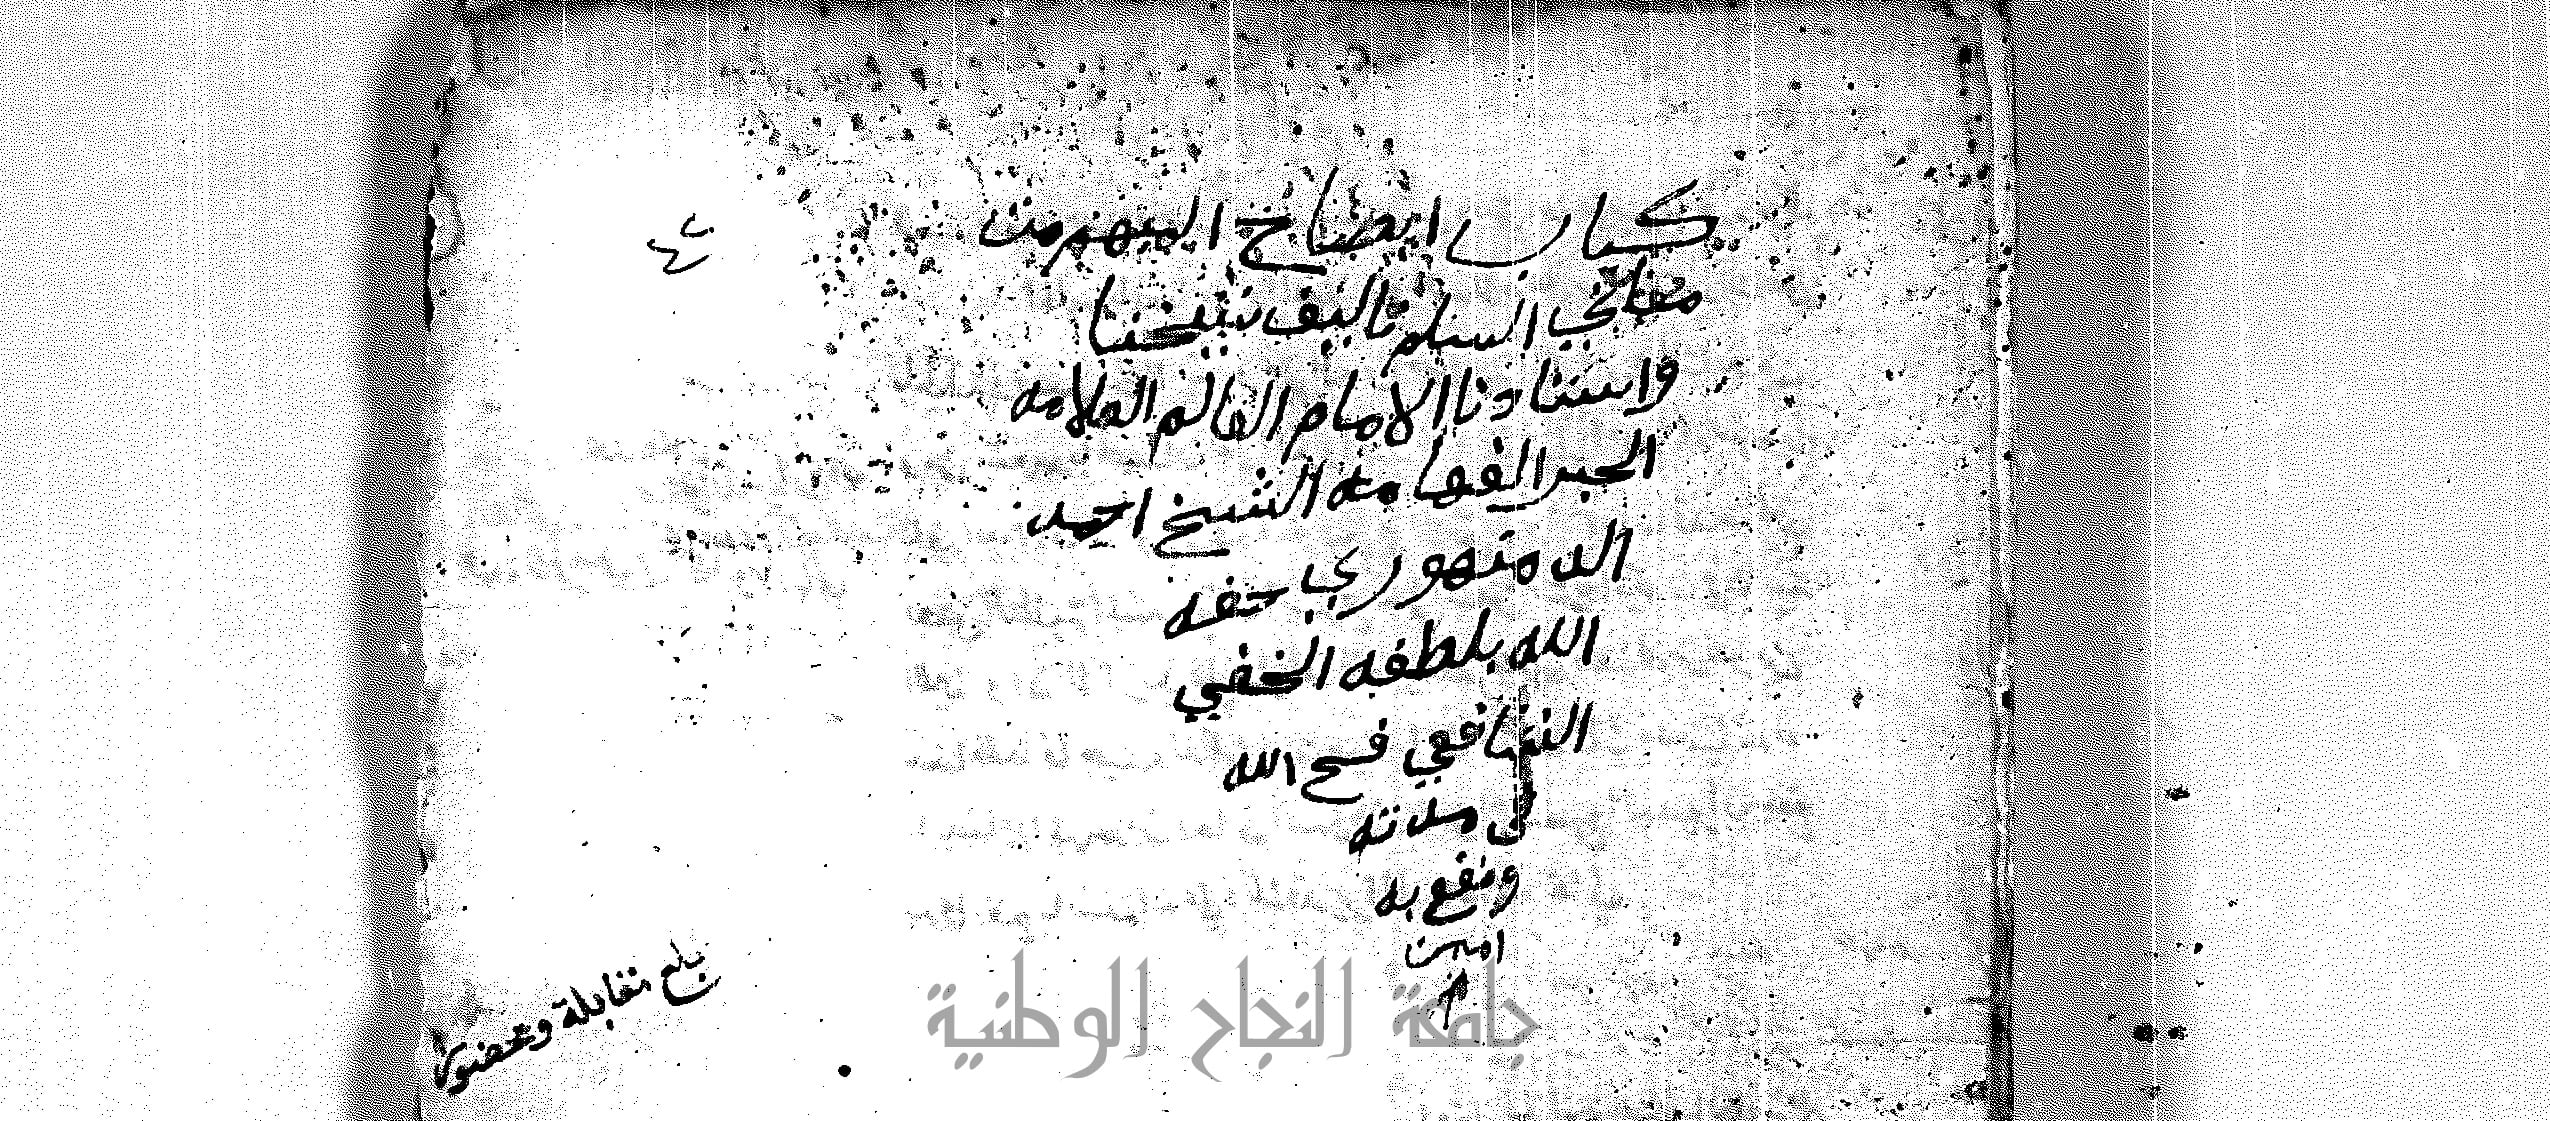 كتاب ايضاح المبهم من
معاني السلم تاليف شيخنا
واستادنا الامام العالم العلامه
الحبر الفهامه الشيخ احمد
الدمنهوري حفه
الله بلطفه الخفي
الشافعي فسح الله
في مدته
ونفع به
امين
م
بلغ مقابلة وتحضورا
جامعة النجاح الوطنية